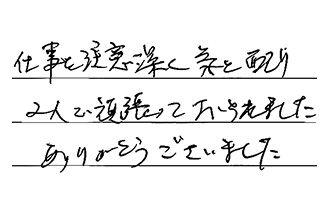 仕事を注意深く気を配り
2人で頑張っておられました
ありがとうございました